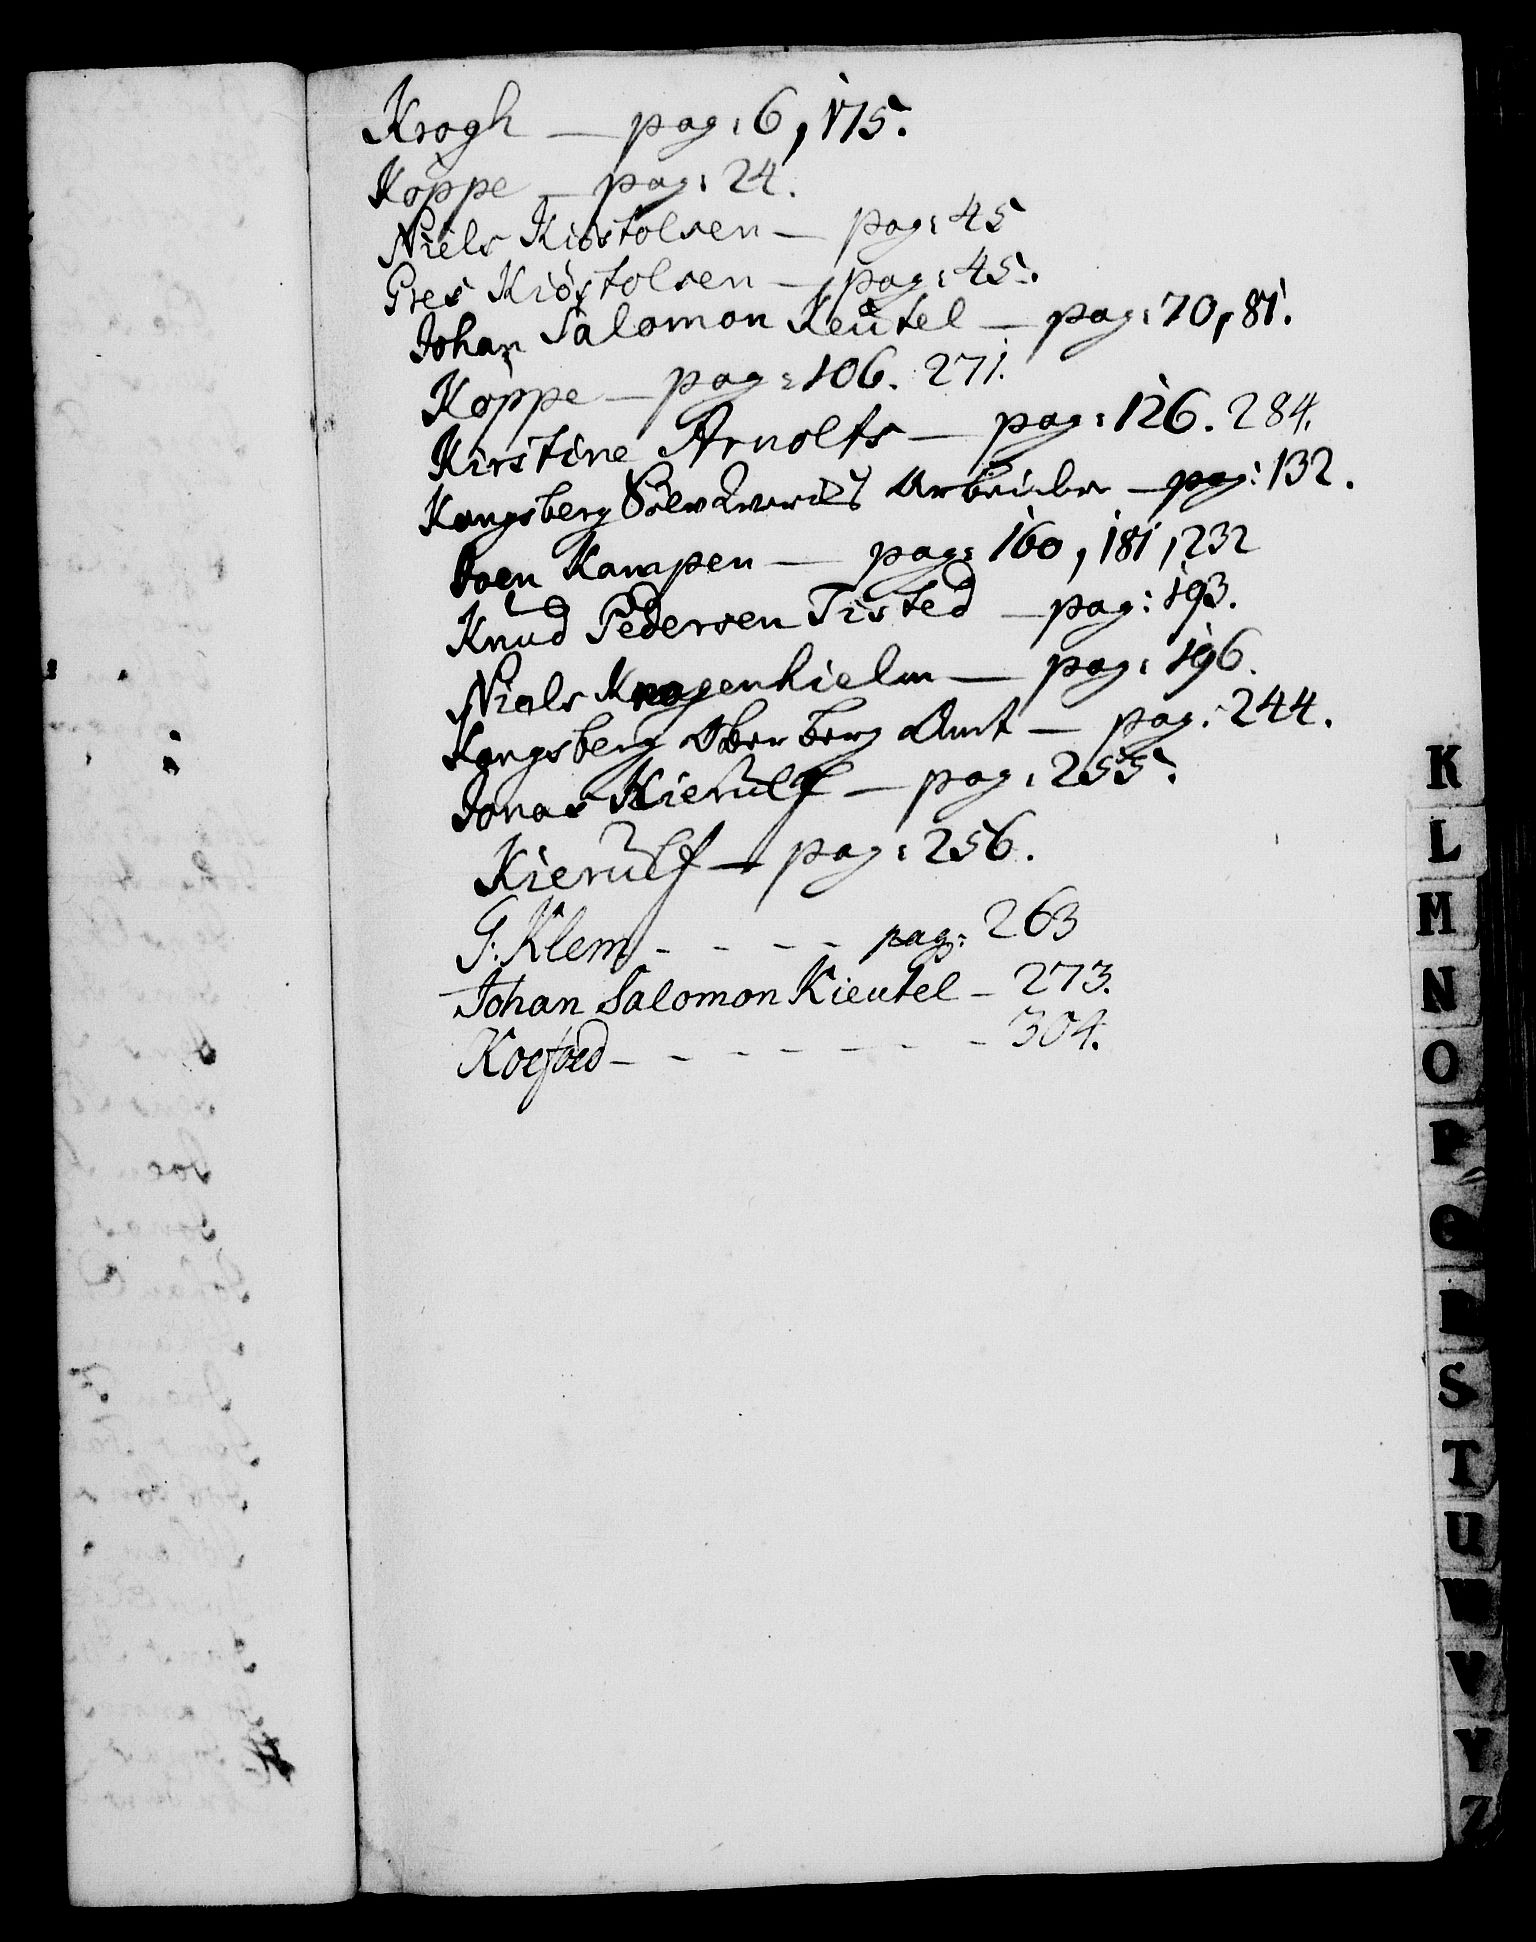 Krogh — pag: 6, 175.
Köppe — pag: 24.
Niels Kiöstolsen — pag: 45
Gies Kiöstolsen — pag: 45.
Johan Salomon Keütel — pag: 70, 81.
Köppe — pag: 106. 271.
Kirstine Arnolts — pag: 126. 284.
Kongsberg Sölvverks Arbeider — pag: 132.
Joen Kampen — pag: 160, 181, 232
Knud Pedersen Tisted — pag: 193.
Niels Kragenhielm — pag: 196.
Kongsberg Ober berg Amt — pag: 244.
Jonas Kierulf — pag: 255.
Kierulf — pag: 256.
G: Klem - - - - pag: 263
Johan Salomon Kieutel - 273.
Koefoed - - - - - - - 304.
K
L
M
N
O
P
Q
R
S
T
U
W
V
Y
Z